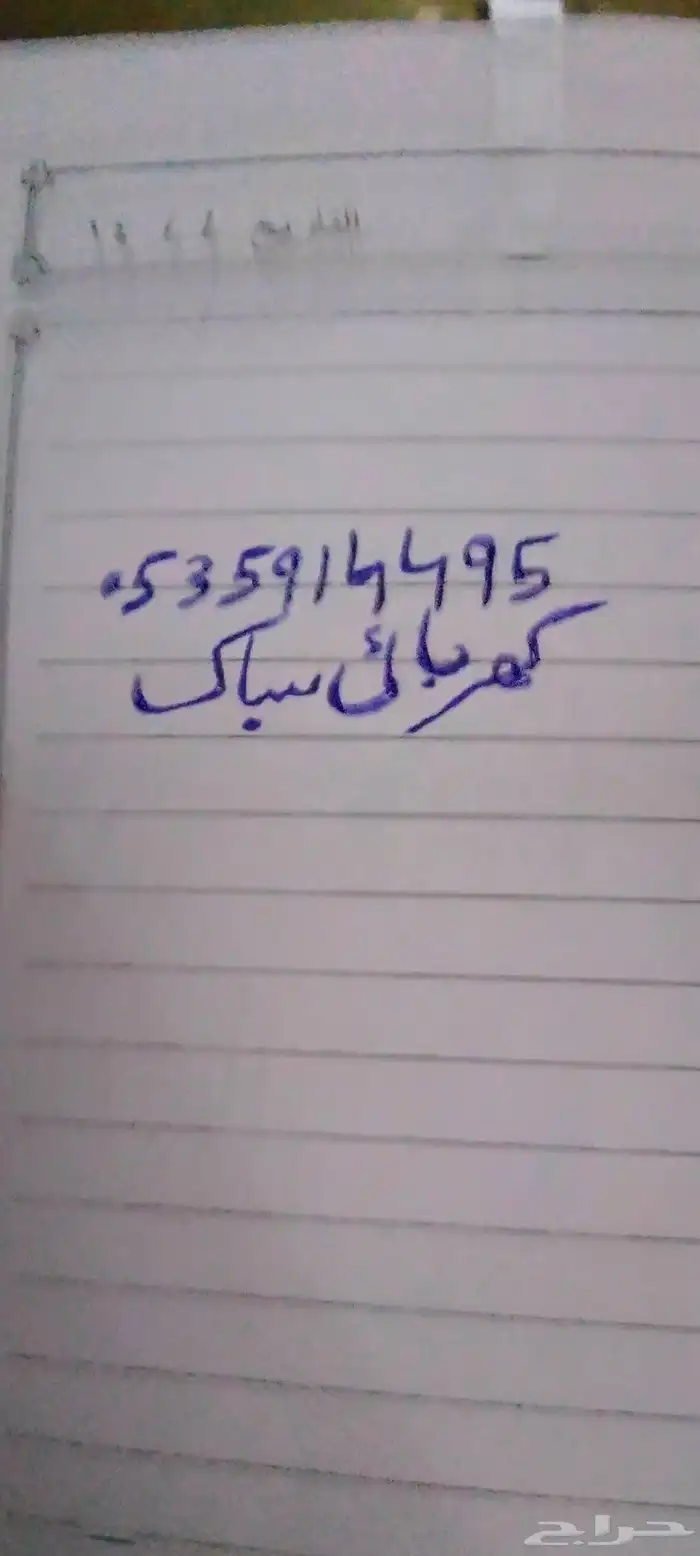 التاريخ
.535914495
كهربائي سباك
حراج